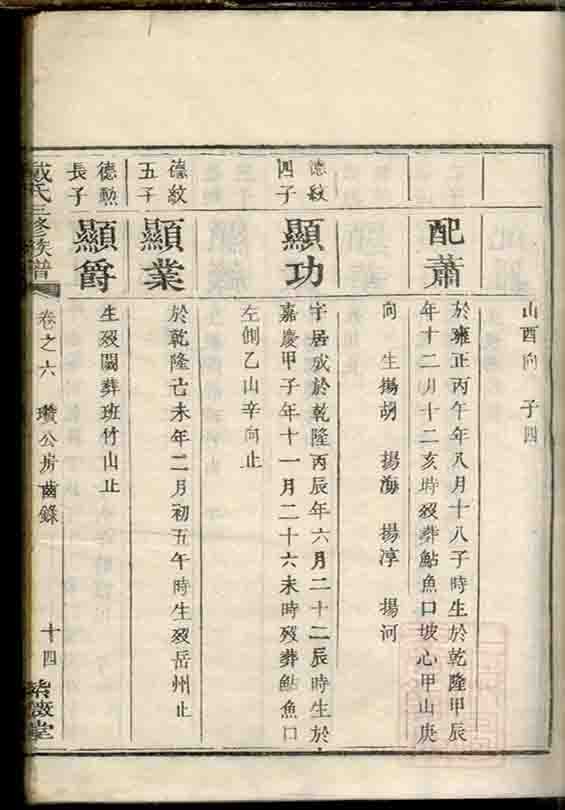 山酉向 子四
配蕭
於雍正丙午年八月十八子時生於乾隆甲辰
年十二月十二亥時歿葬鮎魚口坡心甲山庚
向 生揚胡 揚海 揚淳 揚河
德紋
四子
顯功
字居成於乾隆丙辰年六月二十二辰時生於
嘉慶甲子年十一月二十六未時歿葬鮎魚口
左側乙山辛向止
德紋
五子
顯業
於乾隆己未年二月初五午時生歿岳州止
德勲
長子
顯爵
生歿闕葬班竹山止
戴氏三修族譜
卷之六 瓚公房齒錄 十四
紫微堂